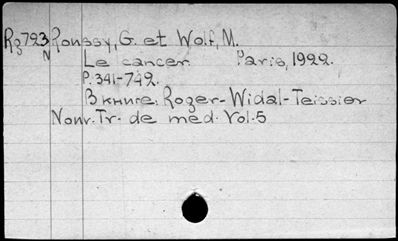 Rg723 Roussy, G. et Wolf, M.
N
Le cancer Paris, 1922.
P. 341-742.
В книге: Roger-Widal-Teissier
Nouv. Tr. de méd. Vol. 5